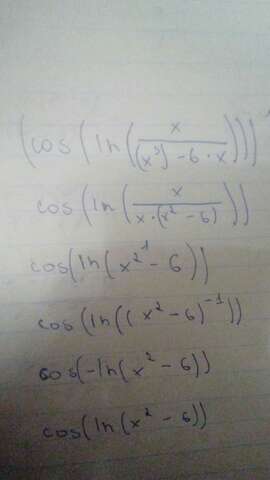 (cos(ln(x/((x³)-6·x))))
cos(ln(x/(x·(x²-6))))
cos(ln(1/(x²-6)))
cos(ln((x²-6)⁻¹))
cos(-ln(x²-6))
cos(ln(x²-6))